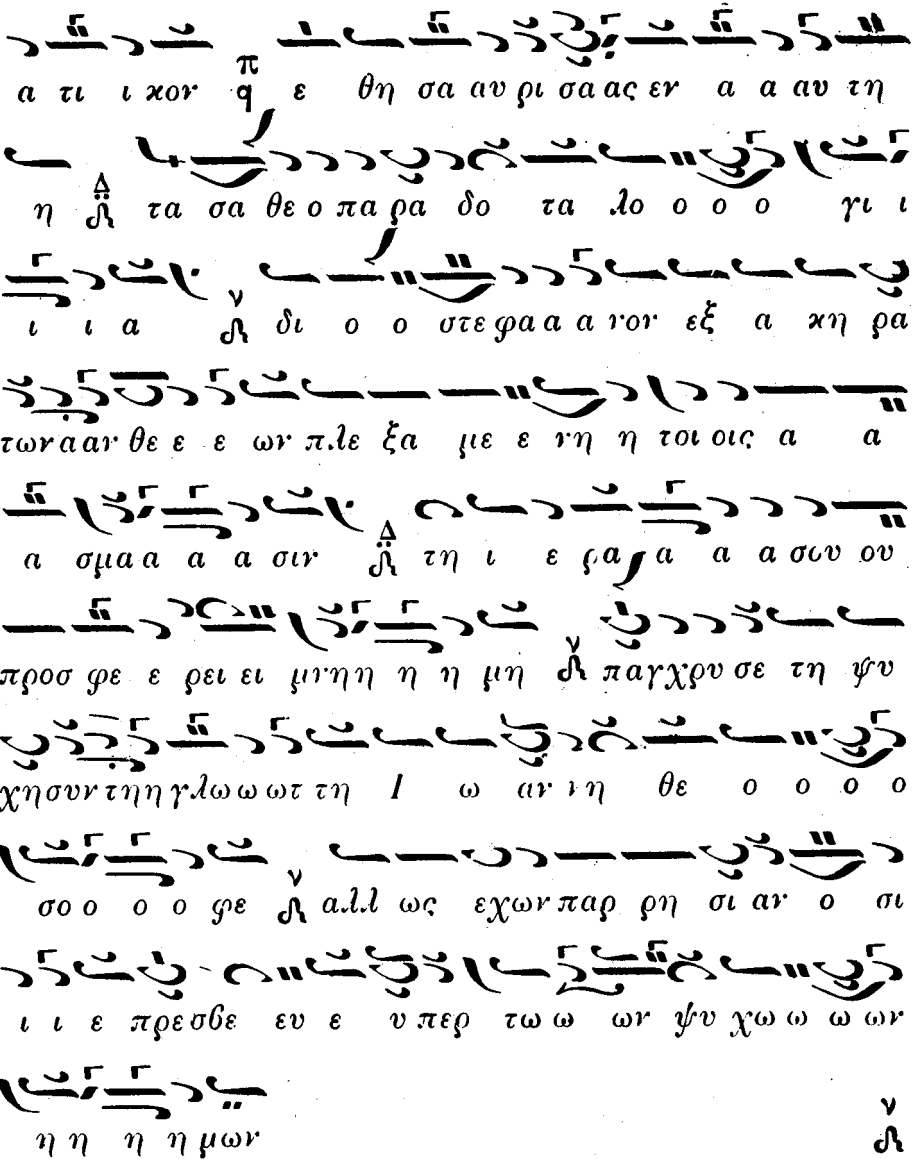 α τι ι κον π q ε θη σα αυ ρι σα ας εν α α αυ τη
η Δ τα σα θε ο πα ρα δο τα λο ο ο ο γι ι
ι ι α ν δι ο ο στε φα α α νον εξ α κη ρα
των α αν θε ε ε ων πλε ξα με ε νη η τοι οις α α
α σμα α α α σιν Δ τη ι ε ρα α α α σου ου
προσ φε ε ρει ει μνη η η η μη ν παγ χρυ σε τη ψυ
χη συν τη η γλω ω ωτ τη Ι ω αν νη θε ο ο ο ο
σο ο ο ο φε ν αλλ ως εχων παρ ρη σι αν ο σι
ι ι ε πρεσβε ευ ε υ περ τω ω ων ψυ χω ω ω ων
η η η η μων ν